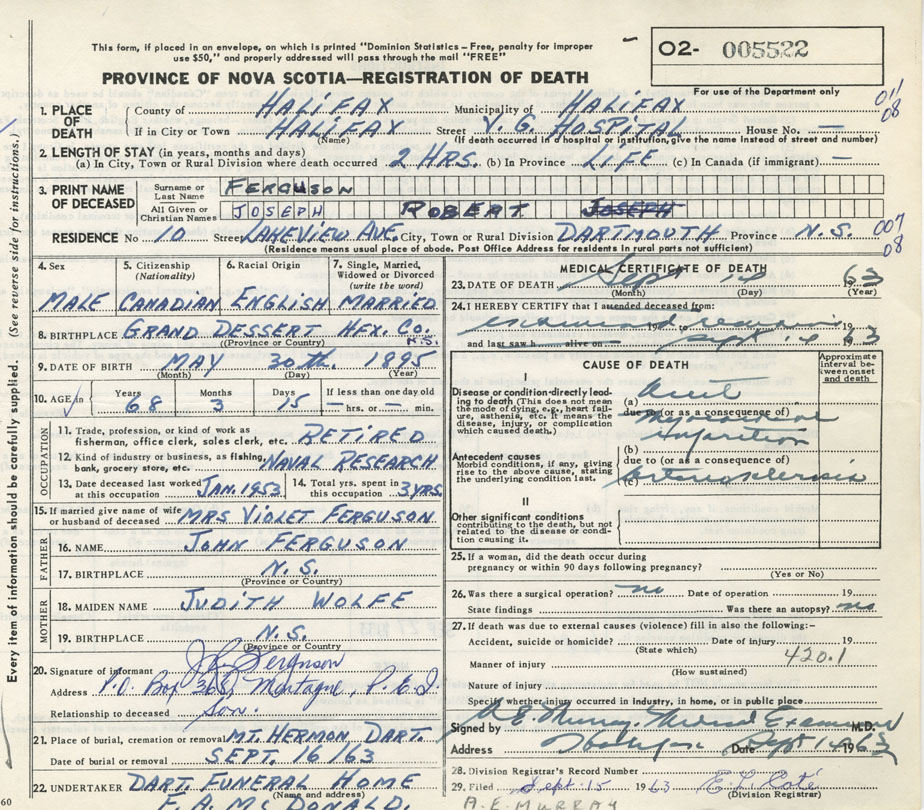 This form, if placed in an envelope, on which is printed "Dominion Statistics – Free, penalty for improper
use $50," and properly addressed will pass through the mail "FREE"
PROVINCE OF NOVA SCOTIA—REGISTRATION OF DEATH
O2- 005522
For use of the Department only
011
08
1. PLACE OF DEATH
County of HALIFAX Municipality of HALIFAX
If in City or Town HALIFAX Street V. G. HOSPITAL House No. —
(Name) (If death occurred in a hospital or institution, give the name instead of street and number)
2. LENGTH OF STAY (in years, months and days)
(a) In City, Town or Rural Division where death occurred 2 HRS. (b) In Province LIFE (c) In Canada (if immigrant) —
3. PRINT NAME OF DECEASED
Surname or Last Name FERGUSON
All Given or Christian Names JOSEPH ROBERT JOSEPH
RESIDENCE No 10 Street LAKEVIEW AVE. City, Town or Rural Division DARTMOUTH Province N.S.
007
08
(Residence means usual place of abode. Post Office Address for residents in rural parts not sufficient)
4. Sex 5. Citizenship (Nationality) 6. Racial Origin 7. Single, Married, Widowed or Divorced (write the word)
MALE CANADIAN ENGLISH MARRIED
8. BIRTHPLACE GRAND DESSERT HFX. CO. N.S.
(Province or Country)
9. DATE OF BIRTH MAY 30th. 1895
(Month) (Day) (Year)
10. AGE in Years 68 Months 3 Days 15 If less than one day old — hrs. or — min.
OCCUPATION
11. Trade, profession, or kind of work as fisherman, office clerk, sales clerk, etc. RETIRED
12. Kind of industry or business, as fishing, bank, grocery store, etc. NAVAL RESEARCH
13. Date deceased last worked at this occupation JAN. 1953 14. Total yrs. spent in this occupation 3 YRS.
15. If married give name of wife or husband of deceased MRS VIOLET FERGUSON
FATHER
16. NAME JOHN FERGUSON
17. BIRTHPLACE N.S.
(Province or Country)
MOTHER
18. MAIDEN NAME JUDITH WOLFE
19. BIRTHPLACE N.S.
(Province or Country)
20. Signature of informant Ferguson
Address P.O. Box 368, Montague, P.E.I.
Relationship to deceased Son.
21. Place of burial, cremation or removal MT. HERMON DART.
Date of burial or removal SEPT. 16/63
22. UNDERTAKER DART. FUNERAL HOME
(Name and address)
F. A. MCDONALD.
60
Every item of information should be carefully supplied. (See reverse side for instructions.)
MEDICAL CERTIFICATE OF DEATH
23. DATE OF DEATH Sept 14 1963
(Month) (Day) (Year)
24. I HEREBY CERTIFY that I attended deceased from:
19 to 19
and last saw h alive on Sept 14 63
CAUSE OF DEATH
Approximate interval between onset and death
I
Disease or condition directly leading to death (This does not mean the mode of dying, e.g., heart failure, asthenia, etc. It means the disease, injury, or complication which caused death.)
(a) Acute
due to (or as a consequence of)
Myocardial
infarction
(b)
Antecedent causes
Morbid conditions, if any, giving rise to the above cause, stating the underlying condition last.
due to (or as a consequence of)
(c) Arteriosclerosis
II
Other significant conditions contributing to the death, but not related to the disease or condition causing it.
25. If a woman, did the death occur during pregnancy or within 90 days following pregnancy?
(Yes or No)
26. Was there a surgical operation? no Date of operation 19
State findings Was there an autopsy? no
27. If death was due to external causes (violence) fill in also the following:—
Accident, suicide or homicide? Date of injury 19
(State which)
420.1
Manner of injury
(How sustained)
Nature of injury
Specify whether injury occurred in industry, in home, or in public place
Signed by A. E. Murray. Medical Examiner M.D.
Address Halifax Date Sept 14 1963
28. Division Registrar's Record Number
29. Filed Sept. 15 1963
(Division Registrar)
A. E. MURRAY